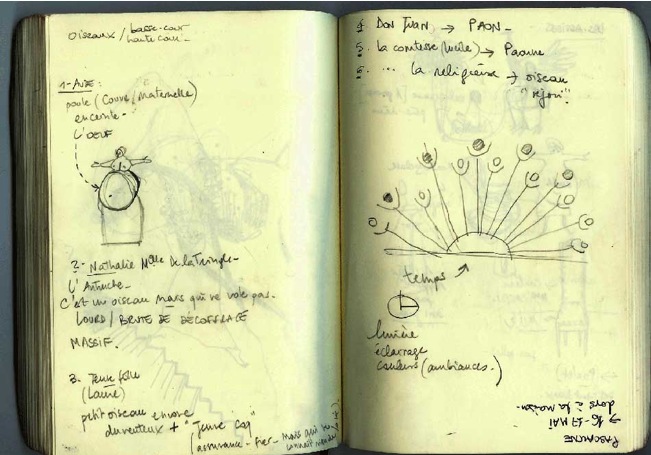 OISEAUX / basse-cour
haute cour -
1- AUE :
poule (Couve / Maternelle)
enceinte -
L'OEUF
2- Nathalie Melle De la Tringle -
L'Autruche -
C'est un oiseau mais qui ne vole pas.
LOURD / BRUTE DE DÉCOFFRAGE
MASSIF.
3. Jeune fille
(Laure)
petit oiseau encore
duveteux + "jeune coq"
(assurance - fier - mais qui
4. DON JUAN → PAON -
5. la comtesse (Lucile) → Paonne
6. ... la religieuse → oiseau
temps →
lumière
éclairage
couleurs (ambiances.)
→ 16-17 MAI
dors à la maison -